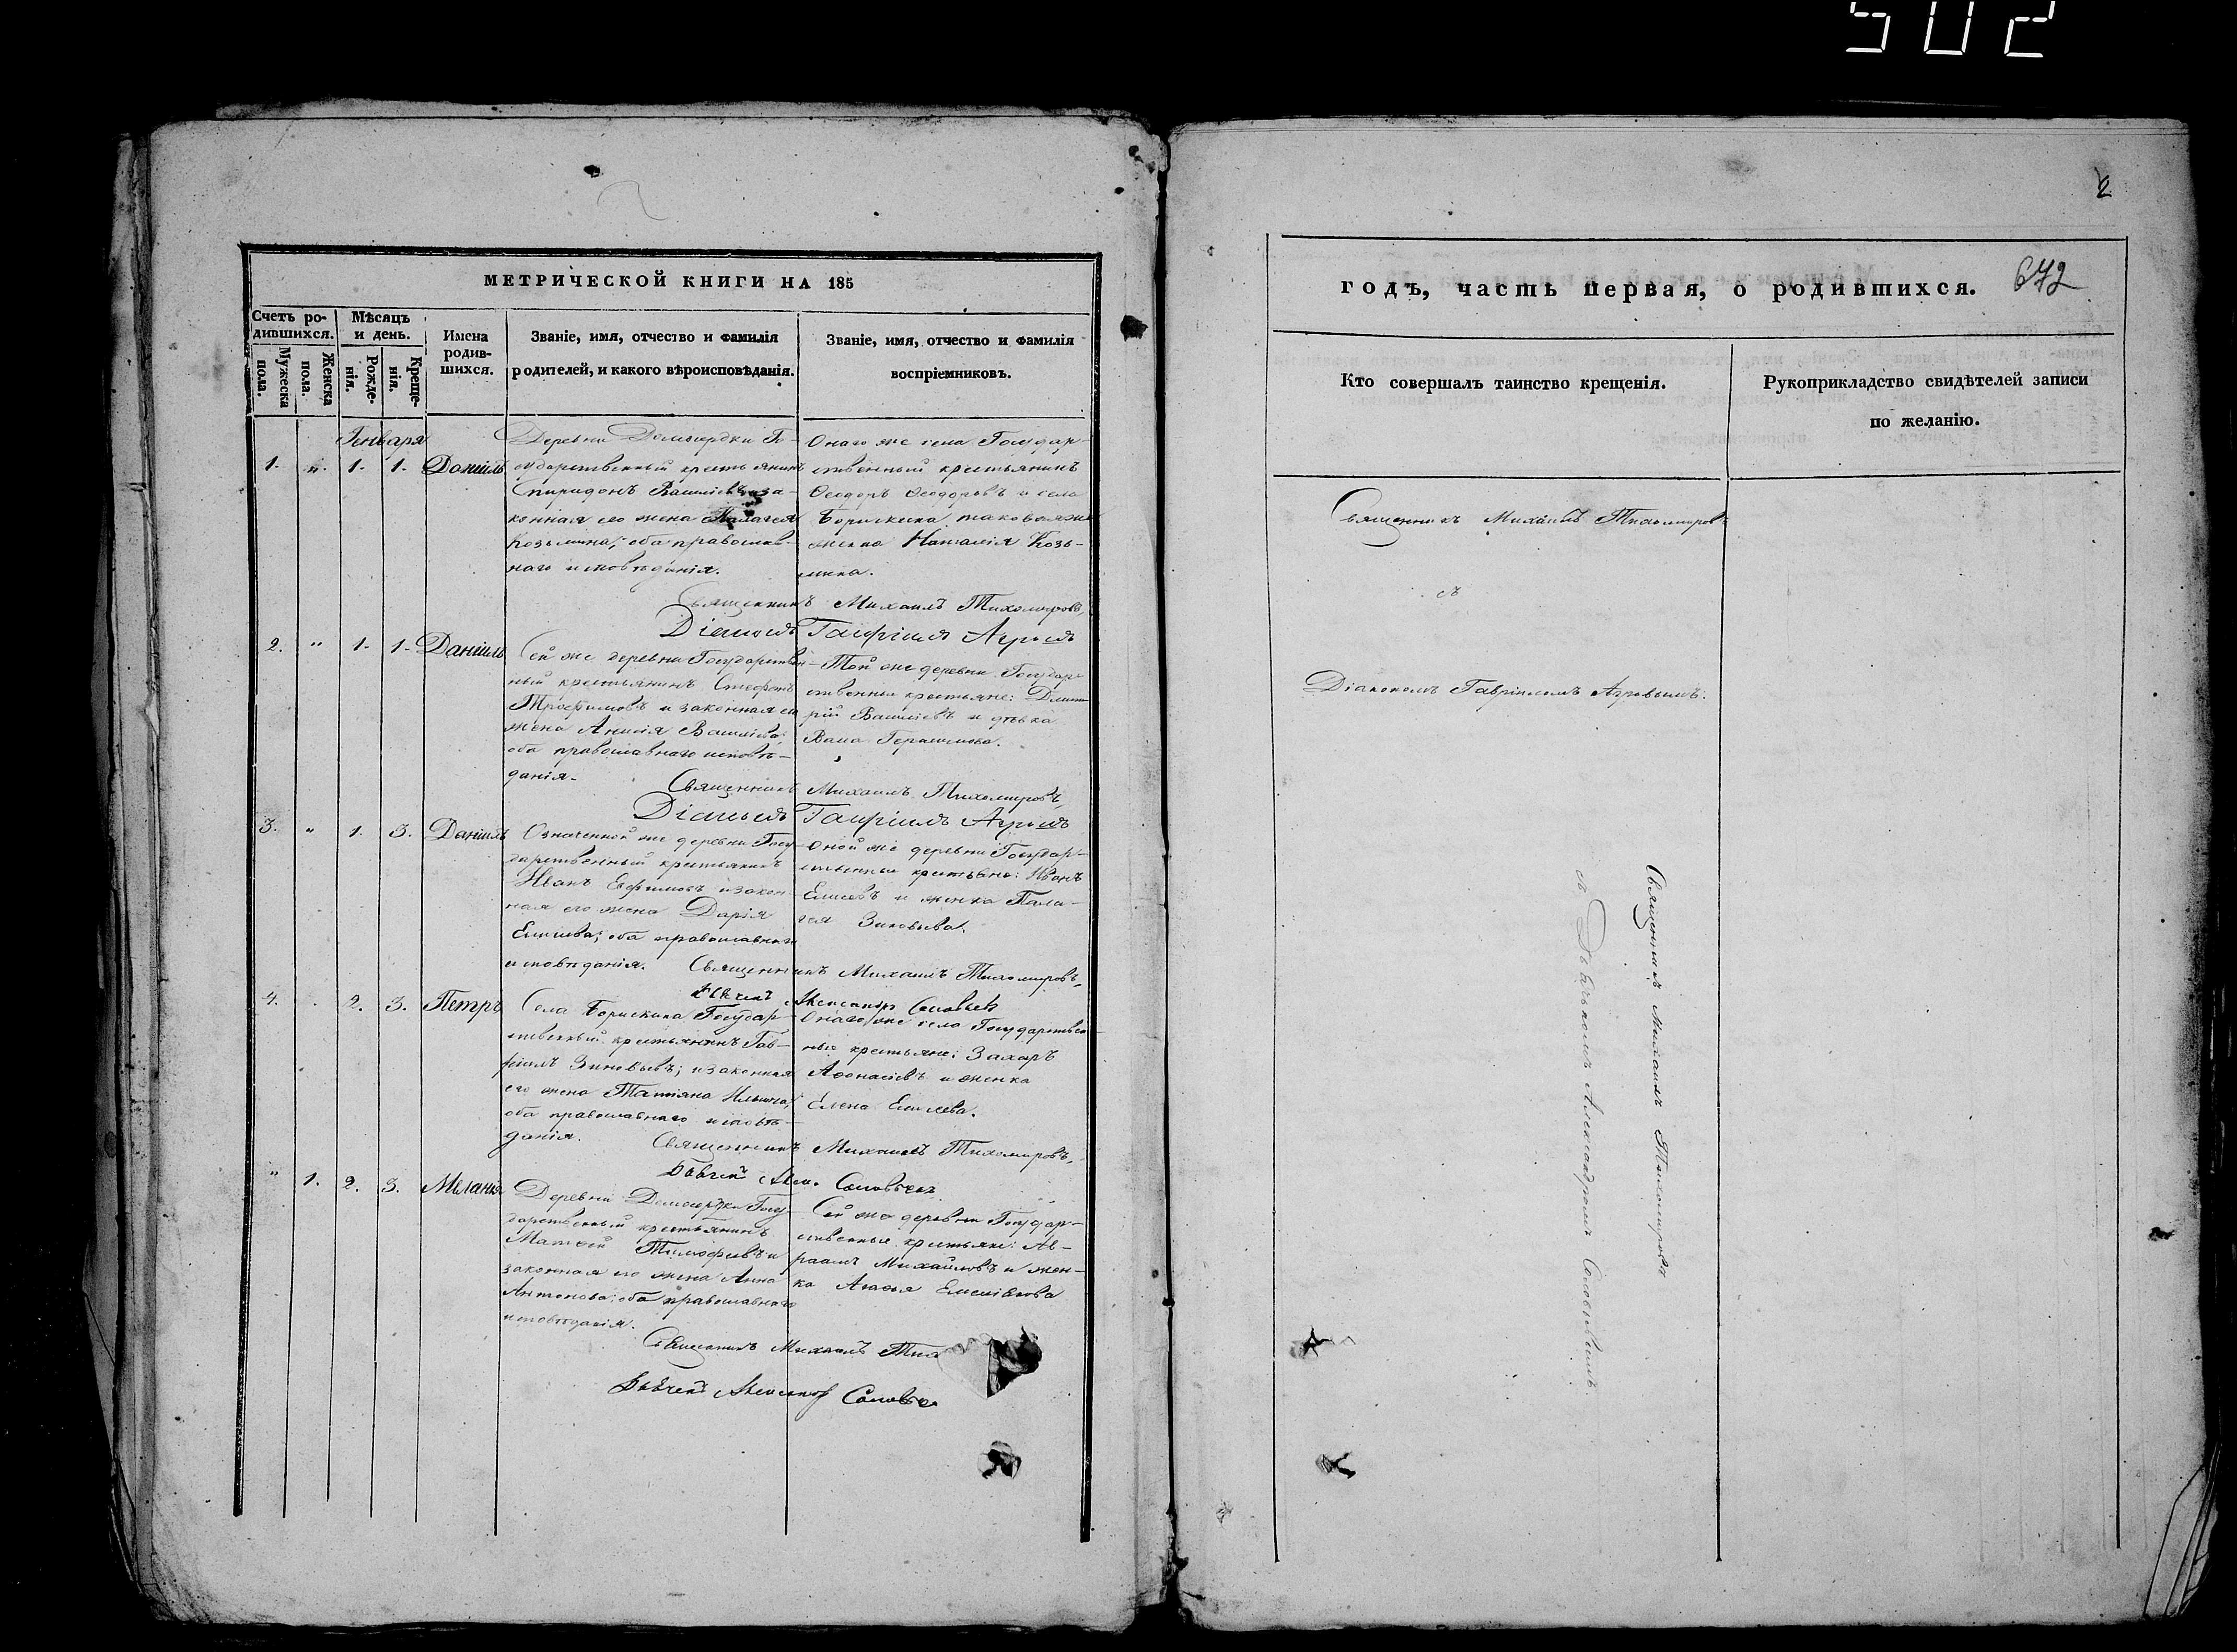 502
2
МЕТРИЧЕСКОЙ КНИГИ НА 185
Счетъ ро-
дившихся.
Мужеска
пола.
Женска
пола.
Мѣсяцъ
и день.
Рожде-
нія.
Креще-
нія.
Имена
родив-
шихся.
Званіе, имя, отчество и фамилія
родителей, и какого вѣроисповѣданія.
Званіе, имя, отчество и фамилія
воспріемниковъ.
Генваря
1. „ 1. 1. Даніилъ
Деревни Го-
сударственный крестьянинъ
Спиридонъ Василіевъ и за-
конная его жена Палагея
Козьмина; оба православ-
наго исповѣданія.
Онаго же села Государ-
ственный крестьянинъ
Ѳеодоръ Ѳеодоровъ и села
Борискина таковаяже
женка Наталія Козь-
мина.
Священникъ Михаилъ Тихомировъ,
Діаконъ Гавріилъ Агровъ
2. „ 1. 1. Даніилъ
Сей же деревни Государствен-
ный крестьянинъ Стефанъ
Трофимовъ и законная его
жена Анисія Василіева;
оба православнаго исповѣ-
данія.
Той же деревни Государ-
ственные крестьяне: Дмит-
рій Василіевъ и дѣвка
Васа Герасимова.
Священникъ Михаилъ Тихомировъ,
Діаконъ Гавріилъ Агровъ
3. „ 1. 3. Даніилъ
Означенной же деревни Госу-
дарственный крестьянинъ
Иванъ Евфимовъ и закон-
ная его жена Дарія
Елисеева; оба православнаго
исповѣданія.
Оной же деревни Государ-
ственные крестьяне: Иванъ
Елисеевъ и женка Пала-
гея Зиновьева.
Священникъ Михаилъ Тихомировъ,
Дьячекъ Александръ Соловьевъ
4. 2. 3. Петръ
Села Борискина Государ-
ственный крестьянинъ Гав-
ріилъ Зиновьевъ; и законная
его жена Татіяна Ильина;
оба православнаго исповѣ-
данія.
Онаго же села Государствен-
ные крестьяне: Захаръ
Аѳонасіевъ и женка
Елена Елисеева.
Священникъ Михаилъ Тихомировъ,
Дьячекъ Алек. Соловьевъ
„ 1. 2. 3. Меланія
Деревни Госу-
дарственный крестьянинъ
Матѳей Тимофеевъ и
законная его жена Анна
Антонова; оба православнаго
исповѣданія.
Сей же деревни Государ-
ственные крестьяне: Ав-
раамъ Михайловъ и жен-
ка Агаѳья
Священникъ Михаилъ Тих
Дьячекъ Александръ Соловье
годъ, часть первая, о родившихся.
672
Кто совершалъ таинство крещенія.
Рукоприкладство свидѣтелей записи
по желанію.
Священникъ Михаилъ Тихомировъ
съ
Діакономъ Гавріиломъ Агровымъ.
Священникъ Михаилъ Тихомировъ
съ Дьячькомъ Александромъ Соловьевымъ.